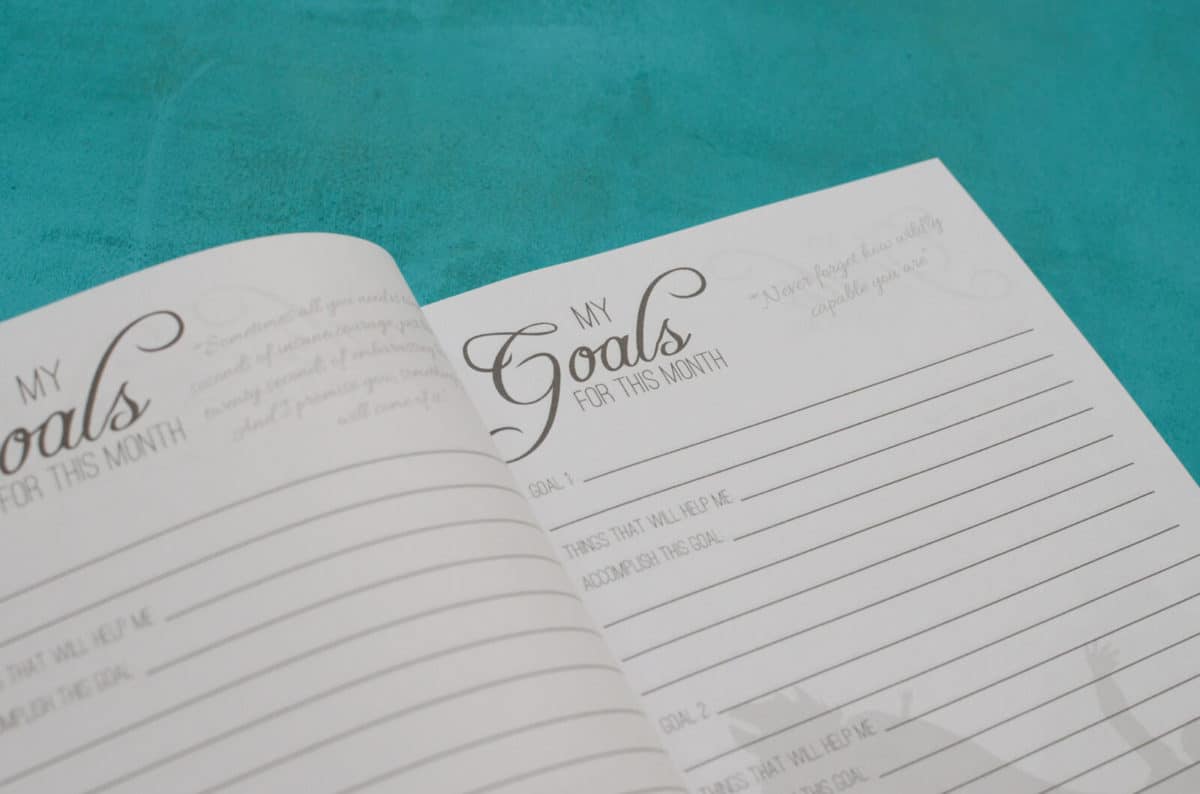 MY
oals
FOR THIS MONTH
"Sometimes all you need is
seconds of insane courage, just
twenty seconds of embarrassing
And I promise you, something
will come of it"
THAT WILL HELP ME
THIS GOAL
MY
Goals
FOR THIS MONTH
"Never forget how wildly
capable you are"
GOAL 1
THINGS THAT WILL HELP ME
ACCOMPLISH THIS GOAL:
GOAL 2
THINGS THAT WILL HELP ME
THIS GOAL: